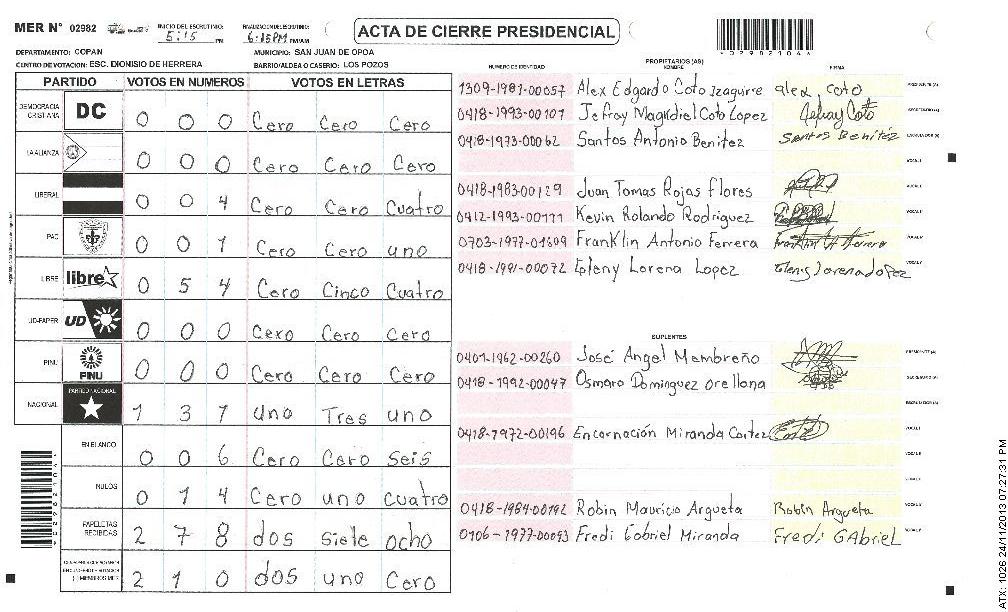 MER N° 02982 INICIO DEL ESCRUTINIO: 5:15 PM FINALIZACION ESCRUTINIO: 6:15 PM PM/AM ACTA DE CIERRE PRESIDENCIAL
*02982104*
DEPARTAMENTO: COPAN MUNICIPIO: SAN JUAN DE OPOA
CENTRO DE VOTACION: ESC. DIONISIO DE HERRERA BARRIO/ALDEA O CASERIO: LOS POZOS
PARTIDO VOTOS EN NUMEROS VOTOS EN LETRAS
DEMOCRACIA CRISTIANA DC 0 0 0 Cero Cero Cero
LA ALIANZA 0 0 0 Cero Cero Cero
LIBERAL 0 0 4 Cero Cero Cuatro
PAC 0 0 1 Cero Cero uno
LIBRE libre 0 5 4 Cero Cinco Cuatro
UD-FAPER UD 0 0 0 Cero Cero Cero
PINU PINU 0 0 0 Cero Cero Cero
NACIONAL PARTIDO NACIONAL 1 3 1 uno Tres uno
EN BLANCO 0 0 6 Cero Cero Seis
NULOS 0 1 4 Cero uno cuatro
PAPELETAS RECIBIDAS 2 7 8 dos Siete ocho
2 1 0 dos uno Cero
PROPIETARIOS (AS)
NUMERO DE IDENTIDAD NOMBRE FIRMA
1309-1981-00057 Alex Edgardo Coto Izaguirre alex coto PRESIDENTE (A)
0418-1993-00101 Jefray Magdiel Coto Lopez Jefray Coto SECRETARIO (A)
0418-1973-00062 Santos Antonio Benitez Santos Benitez ESCRUTADOR (A)
VOCAL I
0418-1983-00129 Juan Tomas Rojas flores
0412-1993-00111 Kevin Rolando Rodriguez
0703-1977-01609 Franklin Antonio Ferrera Franklin A Ferrera
0418-1991-00072 Egleny Lorena Lopez Lorena Lopez
SUPLENTES
0401-1962-00260 José Angel Membreño PRESIDENTE (A)
0418-1992-00047 Osmaro Dominguez orellana SECRETARIO (A)
ESCRUTADOR (A)
0418-1972-00196 Encarnación Miranda Cortez VOCAL I
0418-1984-00192 Robin Mauricio Argueta Robin Argueta
0106-1977-00093 Fredi Gabriel Miranda Fredi GAbriel
ATX: 1026 24/11/2013 07:27:31 PM